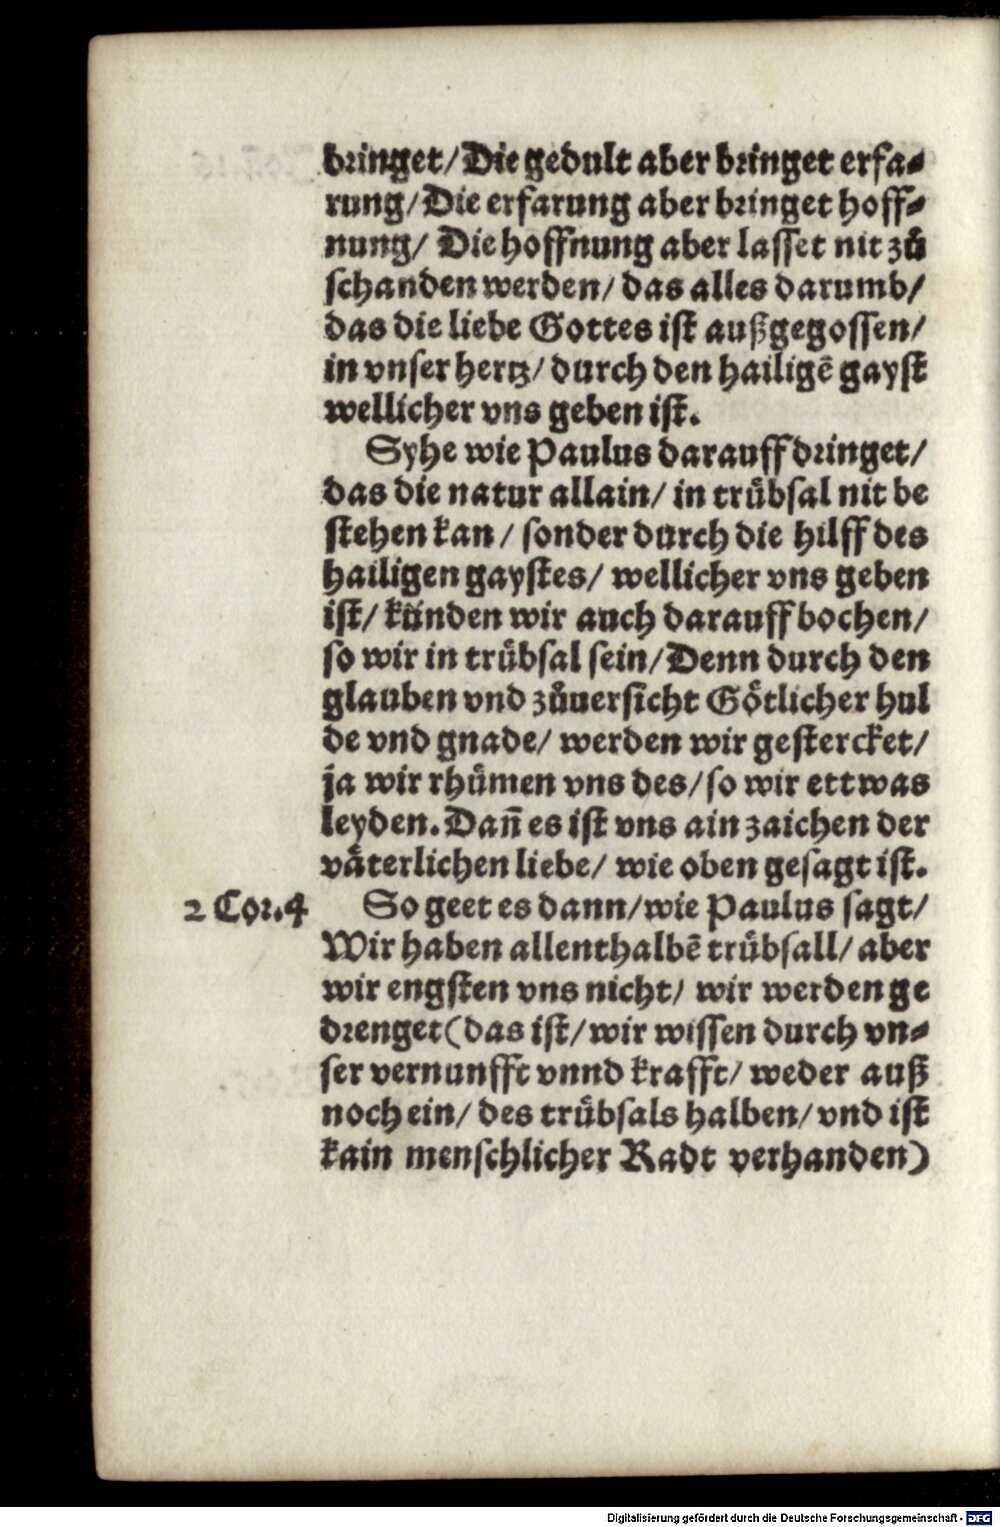 bringet/ Die gedult aber bringet erfa⸗
rung/ Die erfarung aber bringet hoff⸗
nung/ Die hoffnung aber lasset nit zů
schanden werden/ das alles darumb/
das die liebe Gottes ist außgegossen/
in vnser hertz/ durch den hailigē gayst
wellicher vns geben ist.
Syhe wie Paulus darauff dringet/
das die natur allain/ in trübsal nit be
stehen kan/ sonder durch die hilff des
hailigen gaystes/ wellicher vns geben
ist/ künden wir auch darauff bochen/
so wir in trübsal sein/ Denn durch den
glauben vnd zůuersicht Götlicher hul
de vnd gnade/ werden wir gestercket/
ja wir rhümen vns des/ so wir ettwas
leyden. Dan̄ es ist vns ain zaichen der
väterlichen liebe/ wie oben gesagt ist.
2 Cor. 4 So geet es dann/ wie Paulus sagt/
Wir haben allenthalbē trübsall/ aber
wir engsten vns nicht/ wir werden ge
drenget (das ist/ wir wissen durch vn⸗
ser vernunfft vnnd krafft/ weder auß
noch ein/ des trübsals halben/ vnd ist
kain menschlicher Radt verhanden)
Digitalisierung gefördert durch die Deutsche Forschungsgemeinschaft - DFG